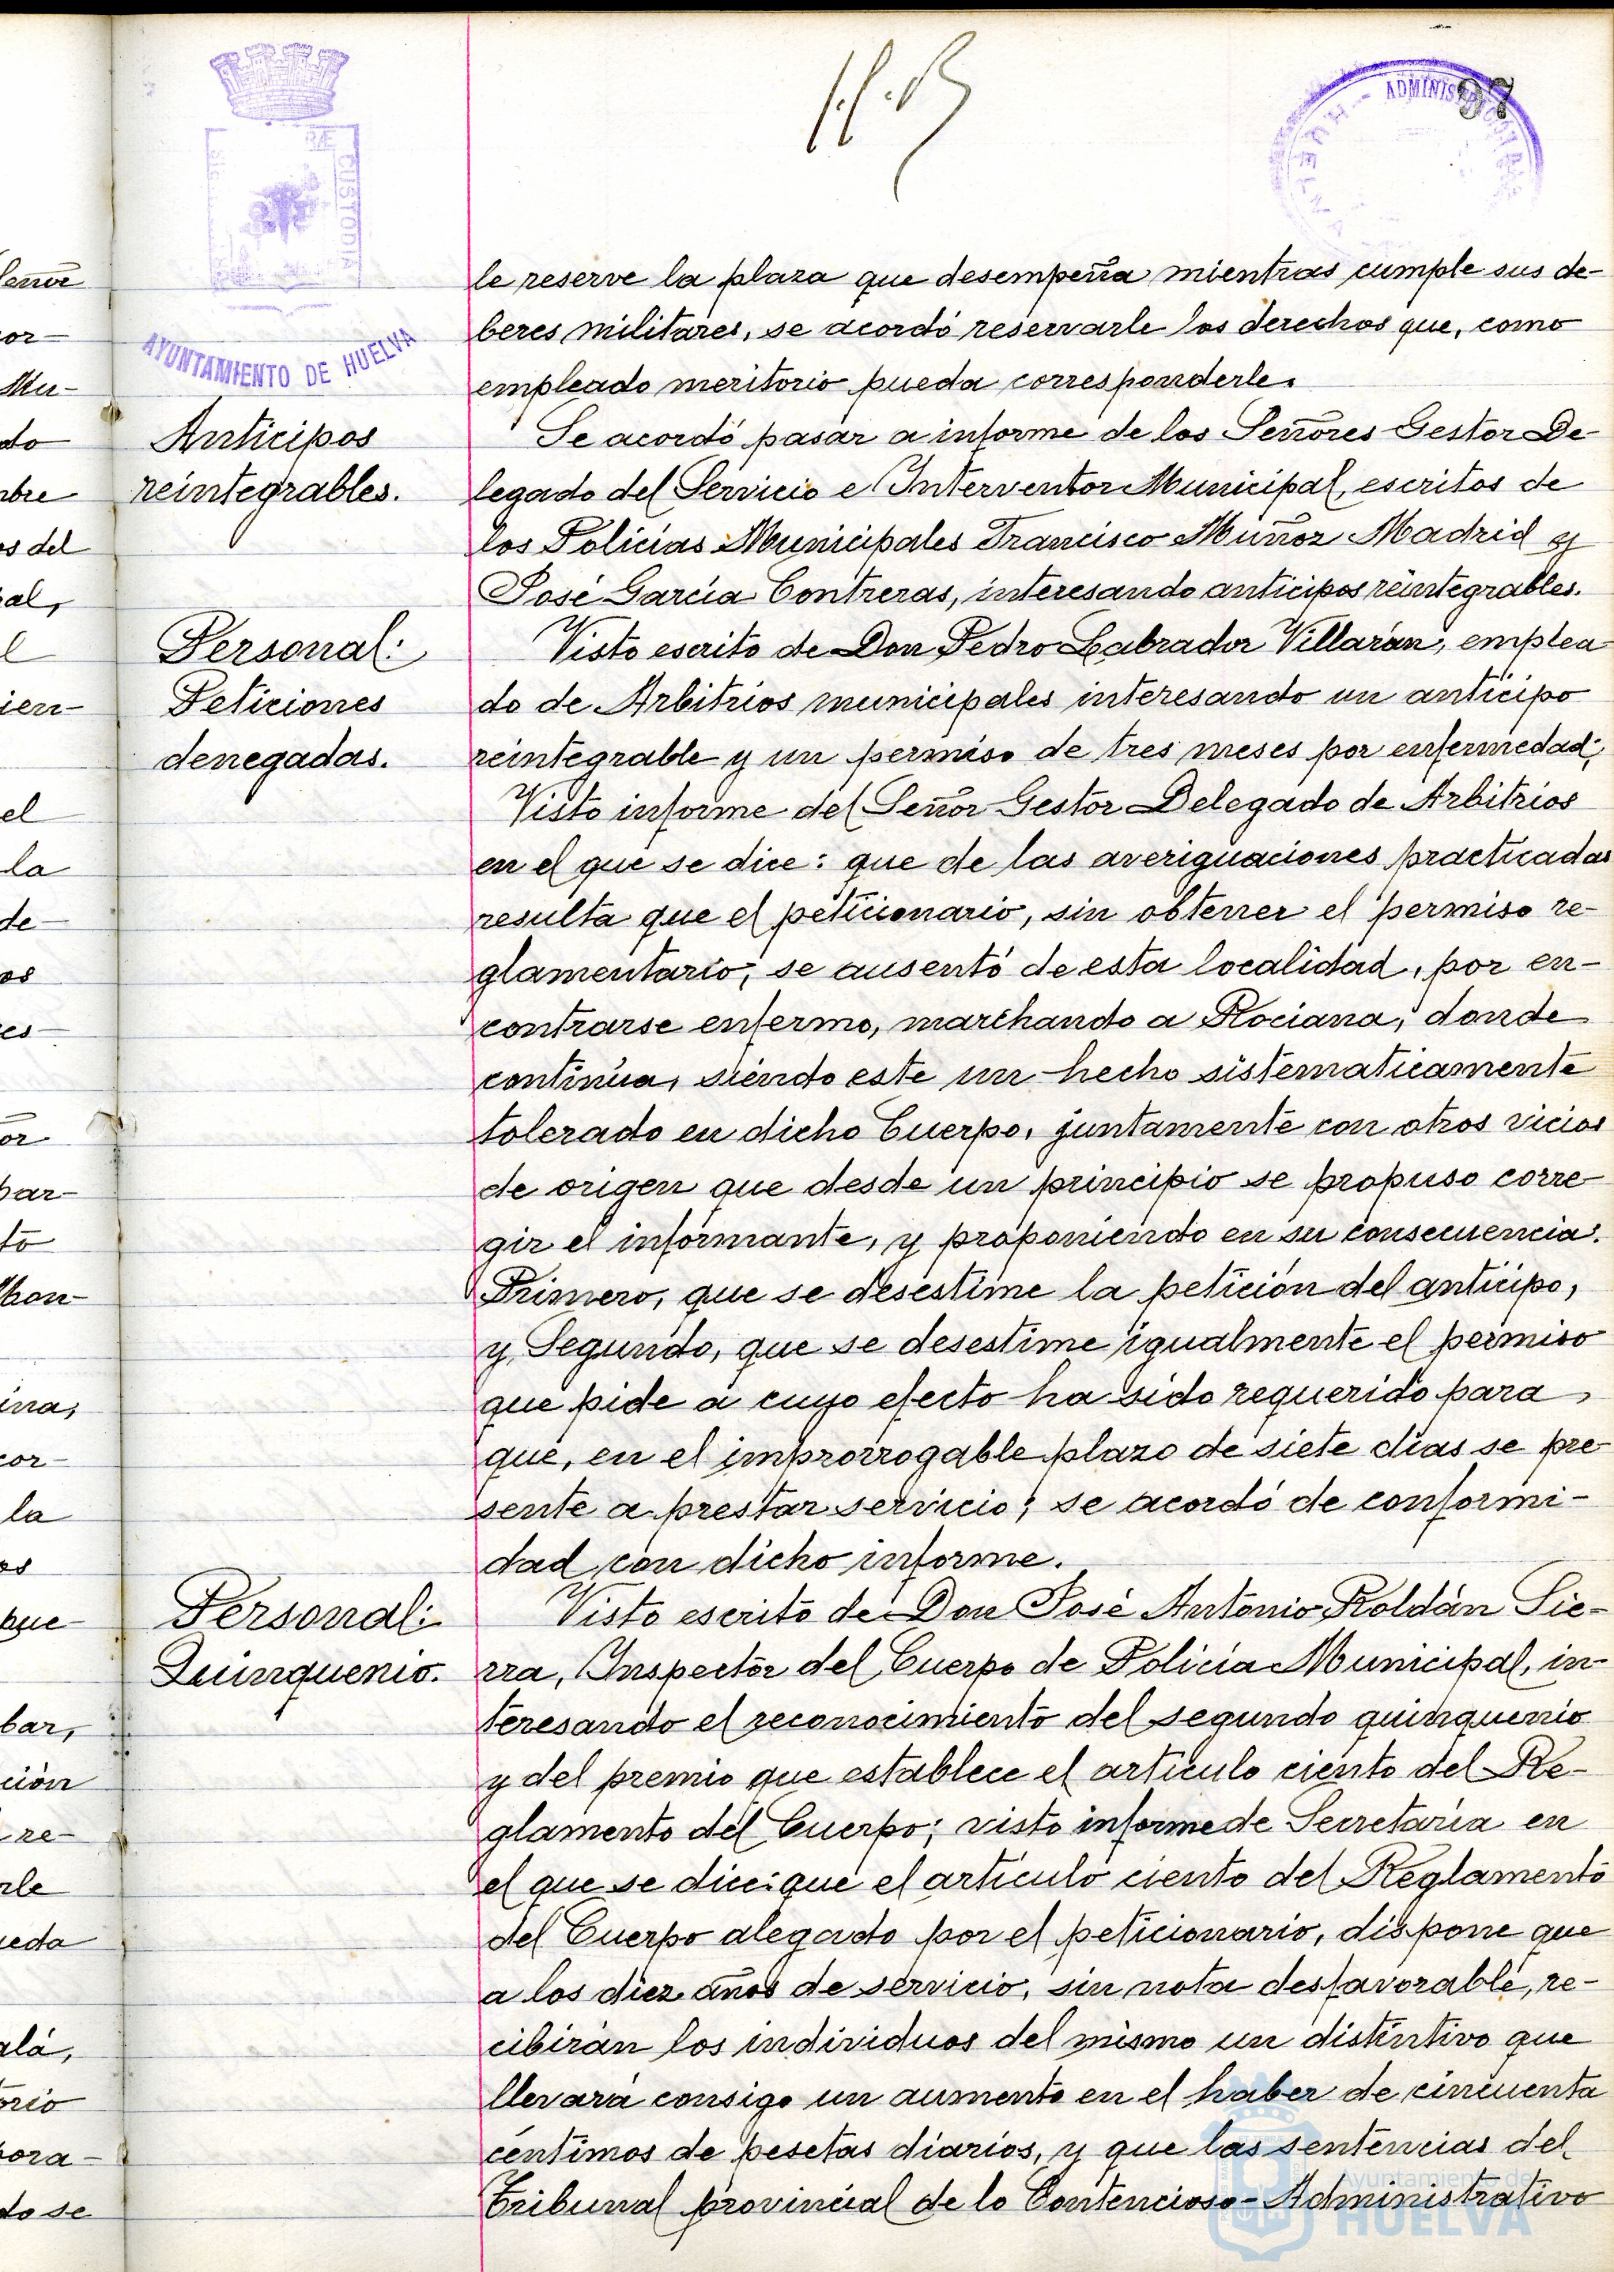 97
AYUNTAMIENTO DE HUELVA
CUSTODIA
ADMINIS
le reserve la plaza que desempeña mientras cumple sus de-
beres militares, se acordó reservarle los derechos que, como
empleado meritorio pueda corresponderle.
Anticipos
reintegrables.
Se acordó pasar a informe de los Señores Gestor De-
legado del Servicio e Interventor Municipal, escritos de
los Policías Municipales Francisco Muñoz Madrid y
José García Contreras, interesando anticipos reintegrables.
Personal:
Peticiones
denegadas.
Visto escrito de Don Pedro Labrador Villarán, emplea-
do de Arbitrios municipales interesando un anticipo
reintegrable y un permiso de tres meses por enfermedad;
Visto informe del Señor Gestor Delegado de Arbitrios
en el que se dice: que de las averiguaciones practicadas
resulta que el peticionario, sin obtener el permiso re-
glamentario, se ausentó de esta localidad, por en-
contrarse enfermo, marchando a Rociana, donde
continúa, siendo este un hecho sistematicamente
tolerado en dicho Cuerpo, juntamente con otros vicios
de origen que desde un principio se propuso corre-
gir el informante, y proponiendo en su consecuencia:
Primero, que se desestime la petición del anticipo,
y Segundo, que se desestime igualmente el permiso
que pide a cuyo efecto ha sido requerido para
que, en el improrrogable plazo de siete días se pre-
sente a prestar servicio; se acordó de conformi-
dad con dicho informe.
Personal:
Quinquenio.
Visto escrito de Don José Antonio Roldán Sie-
rra, Inspector del Cuerpo de Policía Municipal, in-
teresando el reconocimiento del segundo quinquenio
y del premio que establece el artículo ciento del Re-
glamento del Cuerpo; visto informe de Secretaría en
el que se dice: que el artículo ciento del Reglamento
del Cuerpo alegado por el peticionario, dispone que
a los diez años de servicio, sin nota desfavorable, re-
cibirán los individuos del mismo un distintivo que
llevará consigo un aumento en el haber de cincuenta
céntimos de pesetas diarios, y que las sentencias del
Tribunal provincial de lo Contencioso-Administrativo
Ayuntamiento de
HUELVA